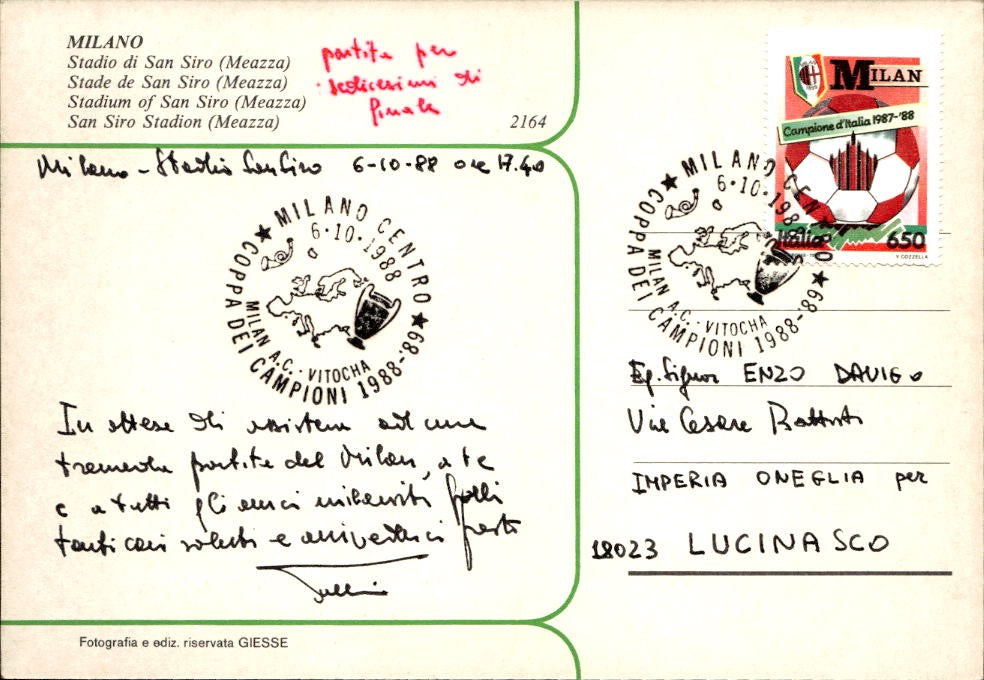 MILANO
Stadio di San Siro (Meazza)
Stade de San Siro (Meazza)
Stadium of San Siro (Meazza)
San Siro Stadion (Meazza)
2164
partita per
sedicesimi di
finale
Milano - Stadio San Siro 6-10-88 ore 17.40
MILANO CENTRO
6-10-1988
MILAN A.C. - VITOCHA
COPPA DEI CAMPIONI 1988-'89
In attesa di assistere ad una
tremenda partita del Milan, a te
e a tutti gli amici milanisti
tanti cari saluti e arrivederci presto
Fotografia e ediz. riservata GIESSE
MILAN
Campione d'Italia 1987-'88
Italia 650
V. COZZELLA
MILANO CENTRO
6-10-1988
MILAN A.C. - VITOCHA
COPPA DEI CAMPIONI 1988-89
Eg. Signor ENZO DAVIGO
Via Cesare Battisti
IMPERIA ONEGLIA per
18023 LUCINASCO